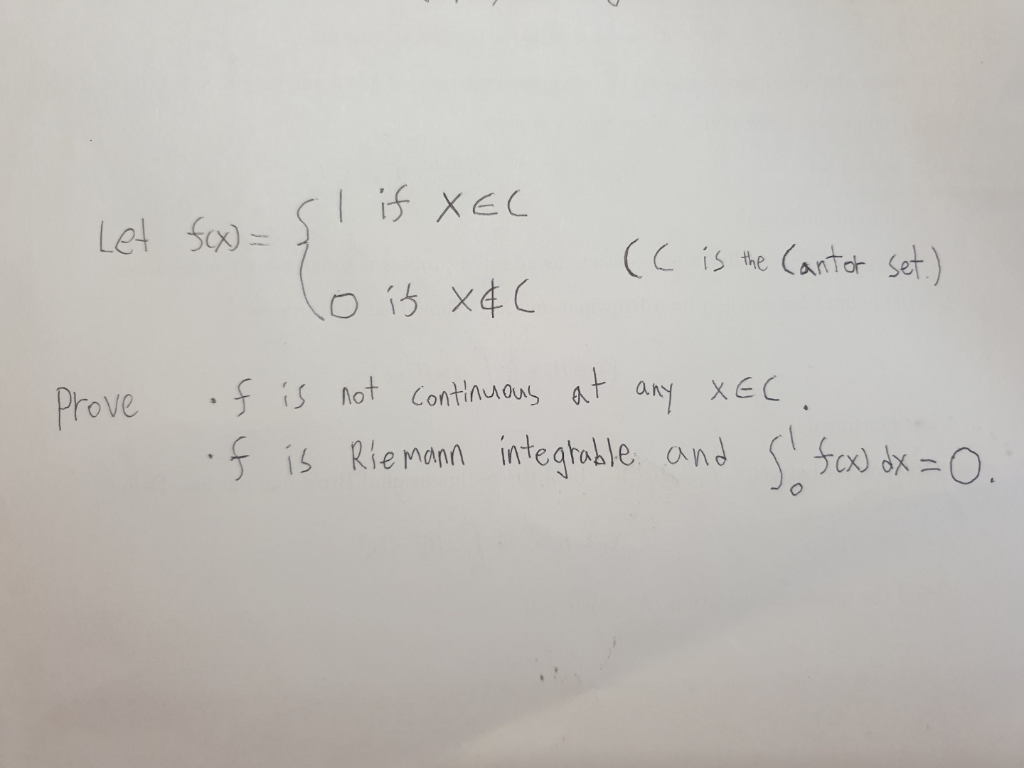 Let f(x) = { 1 if x ∈ C
0 if x ∉ C
(C is the Cantor set.)
Prove • f is not continuous at any x ∈ C.
• f is Riemann integrable and ∫₀¹ f(x) dx = 0.